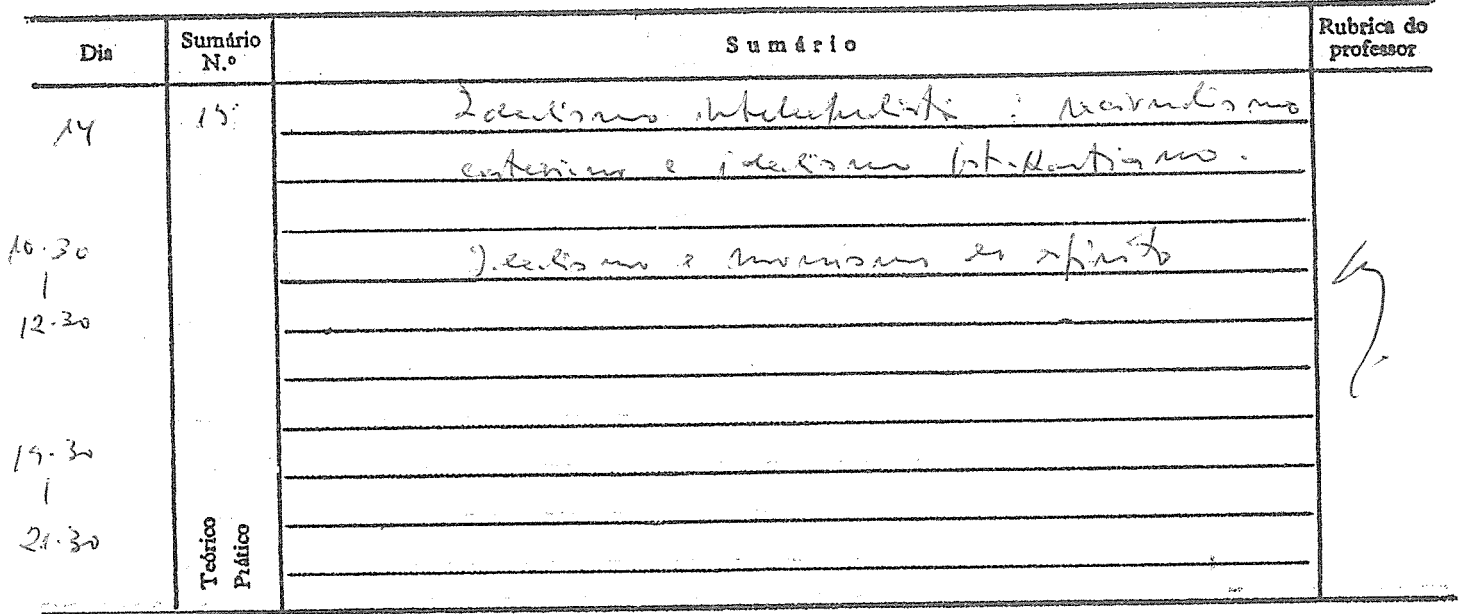 Dia
Sumário N.º
Sumário
Rubrica do professor
14
Idealismo intelectualista : racionalismo
cartesiano e idealismo post-Kantiano.
10.30
|
12.30
Idealismo e monismo do espírito
19.30
|
21.30
Teórico
Prático